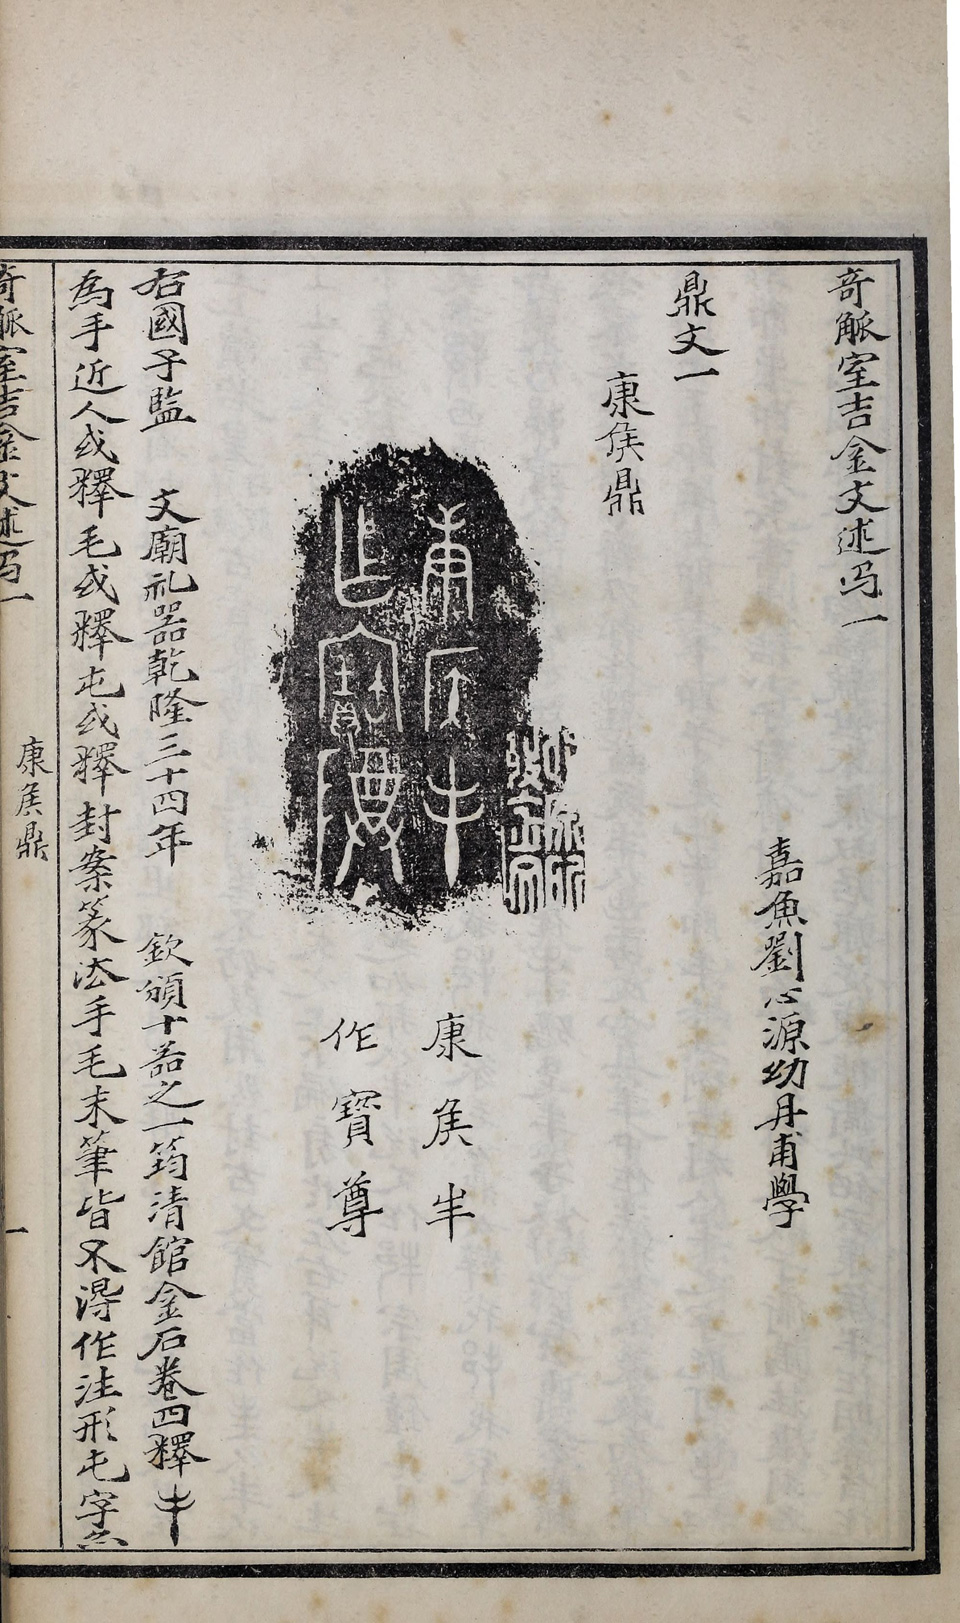 奇觚室吉金文述弓一
嘉魚劉心源幼丹甫學
鼎文一
康矦鼎
康矦丰
作寶尊
右國子監 文廟礼器乾隆三十四年 欽頒十器之一筠清館金石卷四釋
為手近人或釋毛或釋屯或釋封案篆法手毛末筆皆不得作注形屯字
奇觚室吉金文述弓一 康矦鼎 一